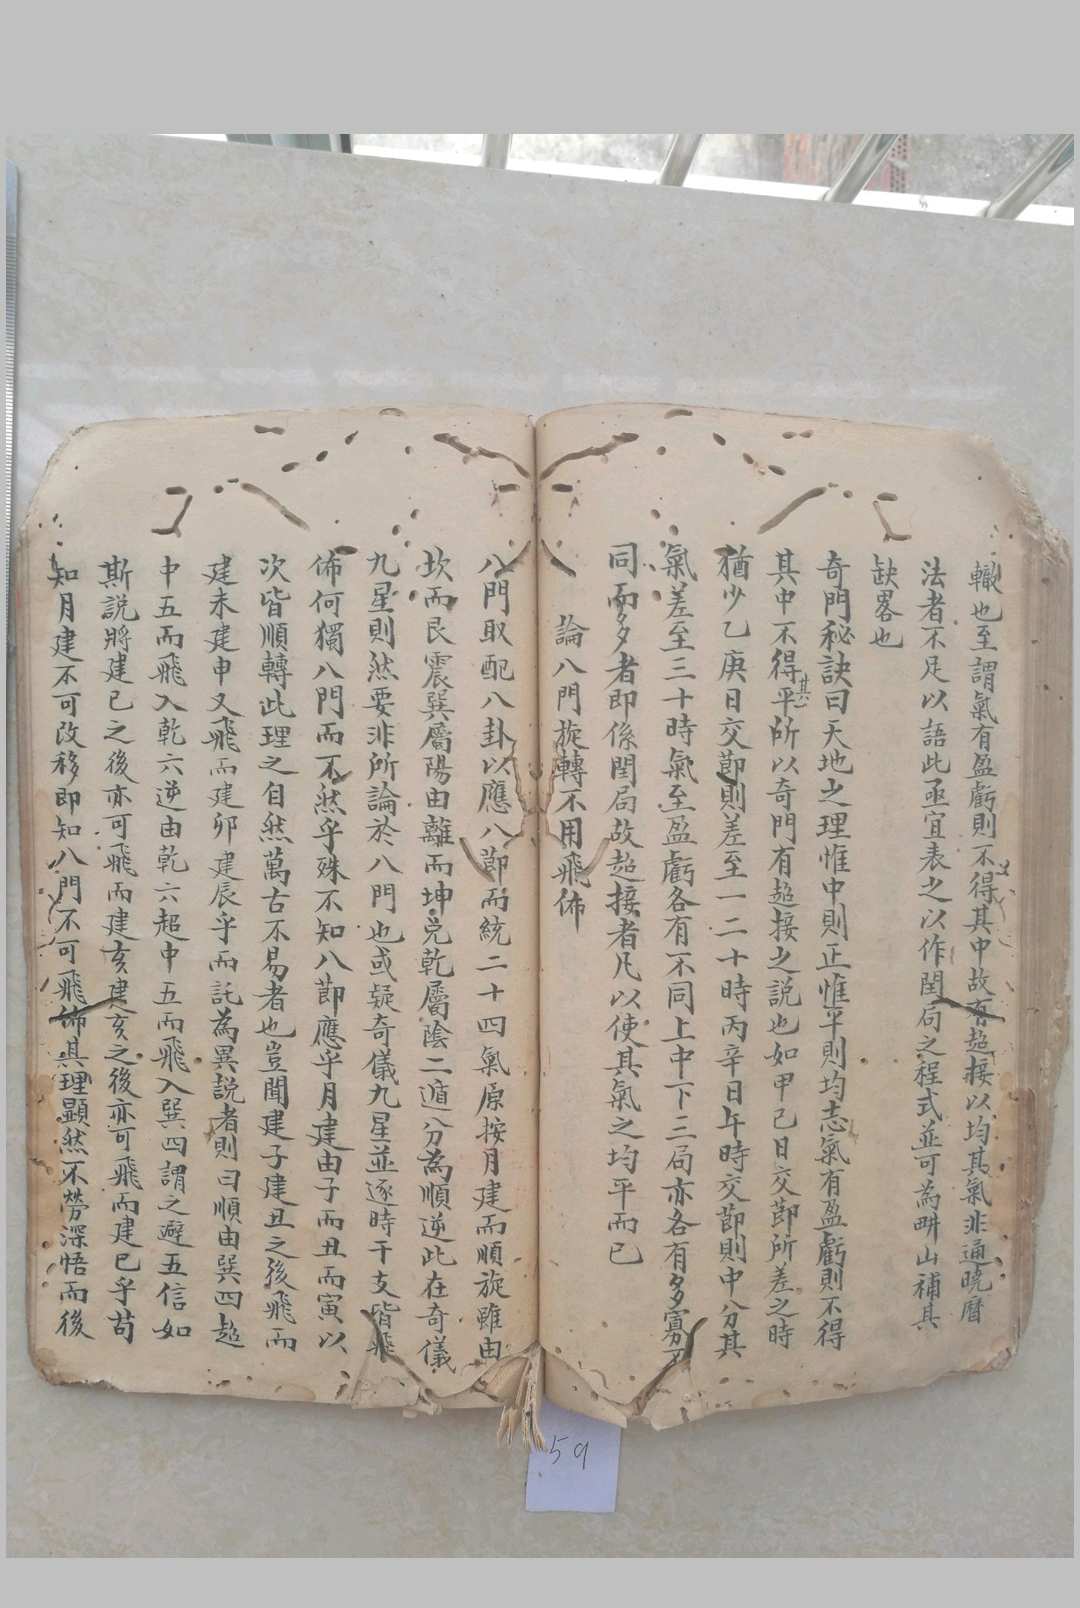 轍也至謂氣有盈虧則不得其中故有超接以均其氣非通曉曆
法者不足以語此亟宜表之以作閏局之程式並可為畊山補其
缺畧也
奇門秘訣曰天地之理惟中則正惟平則均志氣有盈虧則不得
其中不得其平所以奇門有超接之説也如甲己日交節所差之時
猶少乙庚日交節則差至一二十時丙辛日午時交節則中分其
氣差至三十時氣至盈虧各有不同上中下三局亦各有多寡不
同而多者即係閏局故超接者凡以使其氣之均平而已
論八門旋轉不用飛佈
八門取配八卦以應八節而統二十四氣原按月建而順旋雖由
坎而艮震巽屬陽由離而坤兑乾屬陰二遁分為順逆此在奇儀
九星則然要非所論於八門也或疑奇儀九星並逐時干支皆飛
佈何獨八門而不然乎殊不知八節應乎月建由子而丑而寅以
次皆順轉此理之自然萬古不易者也豈聞建子建丑之後飛而
建未建申又飛而建卯建辰乎而託為異説者則曰順由巽四超
中五而飛入乾六逆由乾六超中五而飛入巽四謂之避五信如
斯説將建巳之後亦可飛而建亥建亥之後亦可飛而建巳乎苟
知月建不可改移即知八門不可飛佈其理顯然不勞深悟而後
59